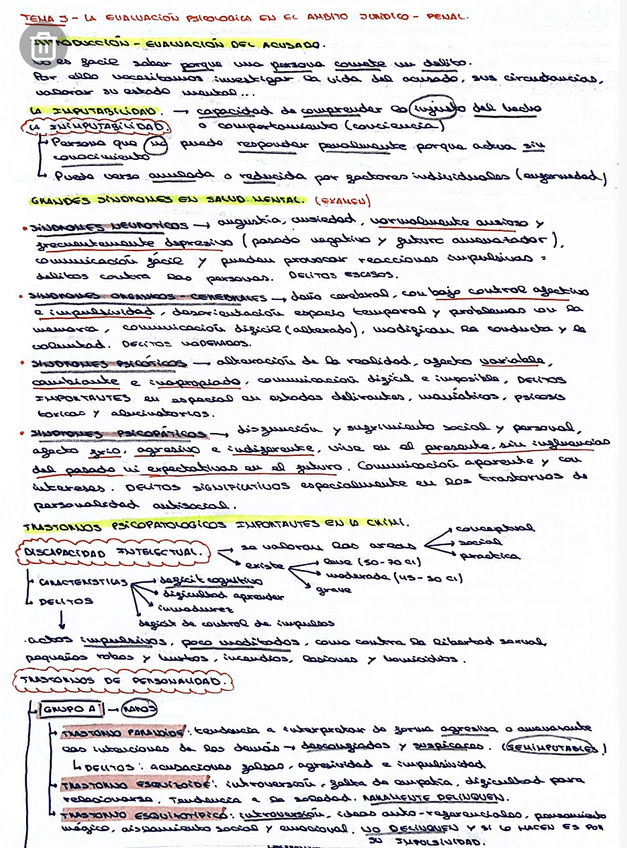 TEMA 3 - LA EVALUACIÓN PSICOLOGICA EN EL AMBITO JURÍDICO - PENAL.
INTRODUCCIÓN - EVALUACIÓN DEL ACUSADO.
No es facil saber porque una persona comete un delito.
Por ello necesitamos investigar la vida del acusado, sus circustancias,
valorar su estado mental...
LA IMPUTABILIDAD. → capacidad de comprender lo injusto del hecho
o comportamiento (conciencia)
LA INIMPUTABILIDAD.
Persona que no puede responder penalmente porque actua sin
conocimiento
Puede verse anulada o reducida por factores individuales (enfermedad)
GRANDES SÍNDROMES EN SALUD MENTAL. (EXAMEN)
• SÍNDROMES NEUROTICOS → angustia, ansiedad, normalmente ansioso y
frecuentemente depresivo (pasado negativo y futuro amenazador),
comunicación fácil y pueden provocar reacciones impulsivas =
delitos contra las personas. DELITOS ESCASOS.
• SÍNDROMES ORGANICOS - CEREBRALES → daño cerebral, con bajo control afectivo
e impulsividad, desorientación espacio temporal y problemas con la
memoria, comunicación dificil (alterado), modifican la conducta y la
voluntad. DELITOS MODERADOS.
• SÍNDROMES PSICÓTICOS → alteración de la realidad, afecto variable,
cambiante e inapropiado, comunicación dificil e imposible, DELITOS
IMPORTANTES en especial en estados delirantes, maníacos, psicosis
toxicas y alucinatorios.
• SÍNDROMES PSICOPÁTICOS → disfunción y sufrimiento social y personal,
afecto frío, agresivo e indiferente, vive en el presente, sin influencias
del pasado ni expectativas en el futuro. Comunicación aparente y con
intereses. DELITOS SIGNIFICATIVOS especialmente en los trastornos de
personalidad antisocial.
TRASTORNOS PSICOPATOLOGICOS IMPORTANTES EN LA CRIMI.
DISCAPACIDAD INTELECTUAL. → se valoran las areas → conceptual
→ social
→ practica
→ existe → leve (50-70 CI)
→ moderada (45-50 CI)
→ grave
CARACTERISTICAS → deficit cognitivo
→ dificultad aprender
→ inmadurez
deficit de control de impulsos
DELITOS
↓
actos impulsivos, poco meditados, como contra la libertad sexual,
pequeños robos y hurtos, incendios, lesiones y homicidios.
TRASTORNOS DE PERSONALIDAD.
GRUPO A → RAROS
TRASTORNO PARANOIDE: tendencia a interpretar de forma agresiva o amenazante
las intenciones de los demás → desconfiados y suspicaces. (SEMIIMPUTABLES)
DELITOS: acusaciones falsas, agresividad e impulsividad
TRASTORNO ESQUIZOIDE: introversión, falta de empatia, dificultad para
relacionarse, tendencia a la soledad. RARAMENTE DELINQUEN.
TRASTORNO ESQUIZOTIPICO: introversión, ideas auto-referenciales, pensamiento
mágico, aislamiento social y emocional. NO DELINQUEN Y SI LO HACEN ES POR
SU IMPULSIVIDAD.